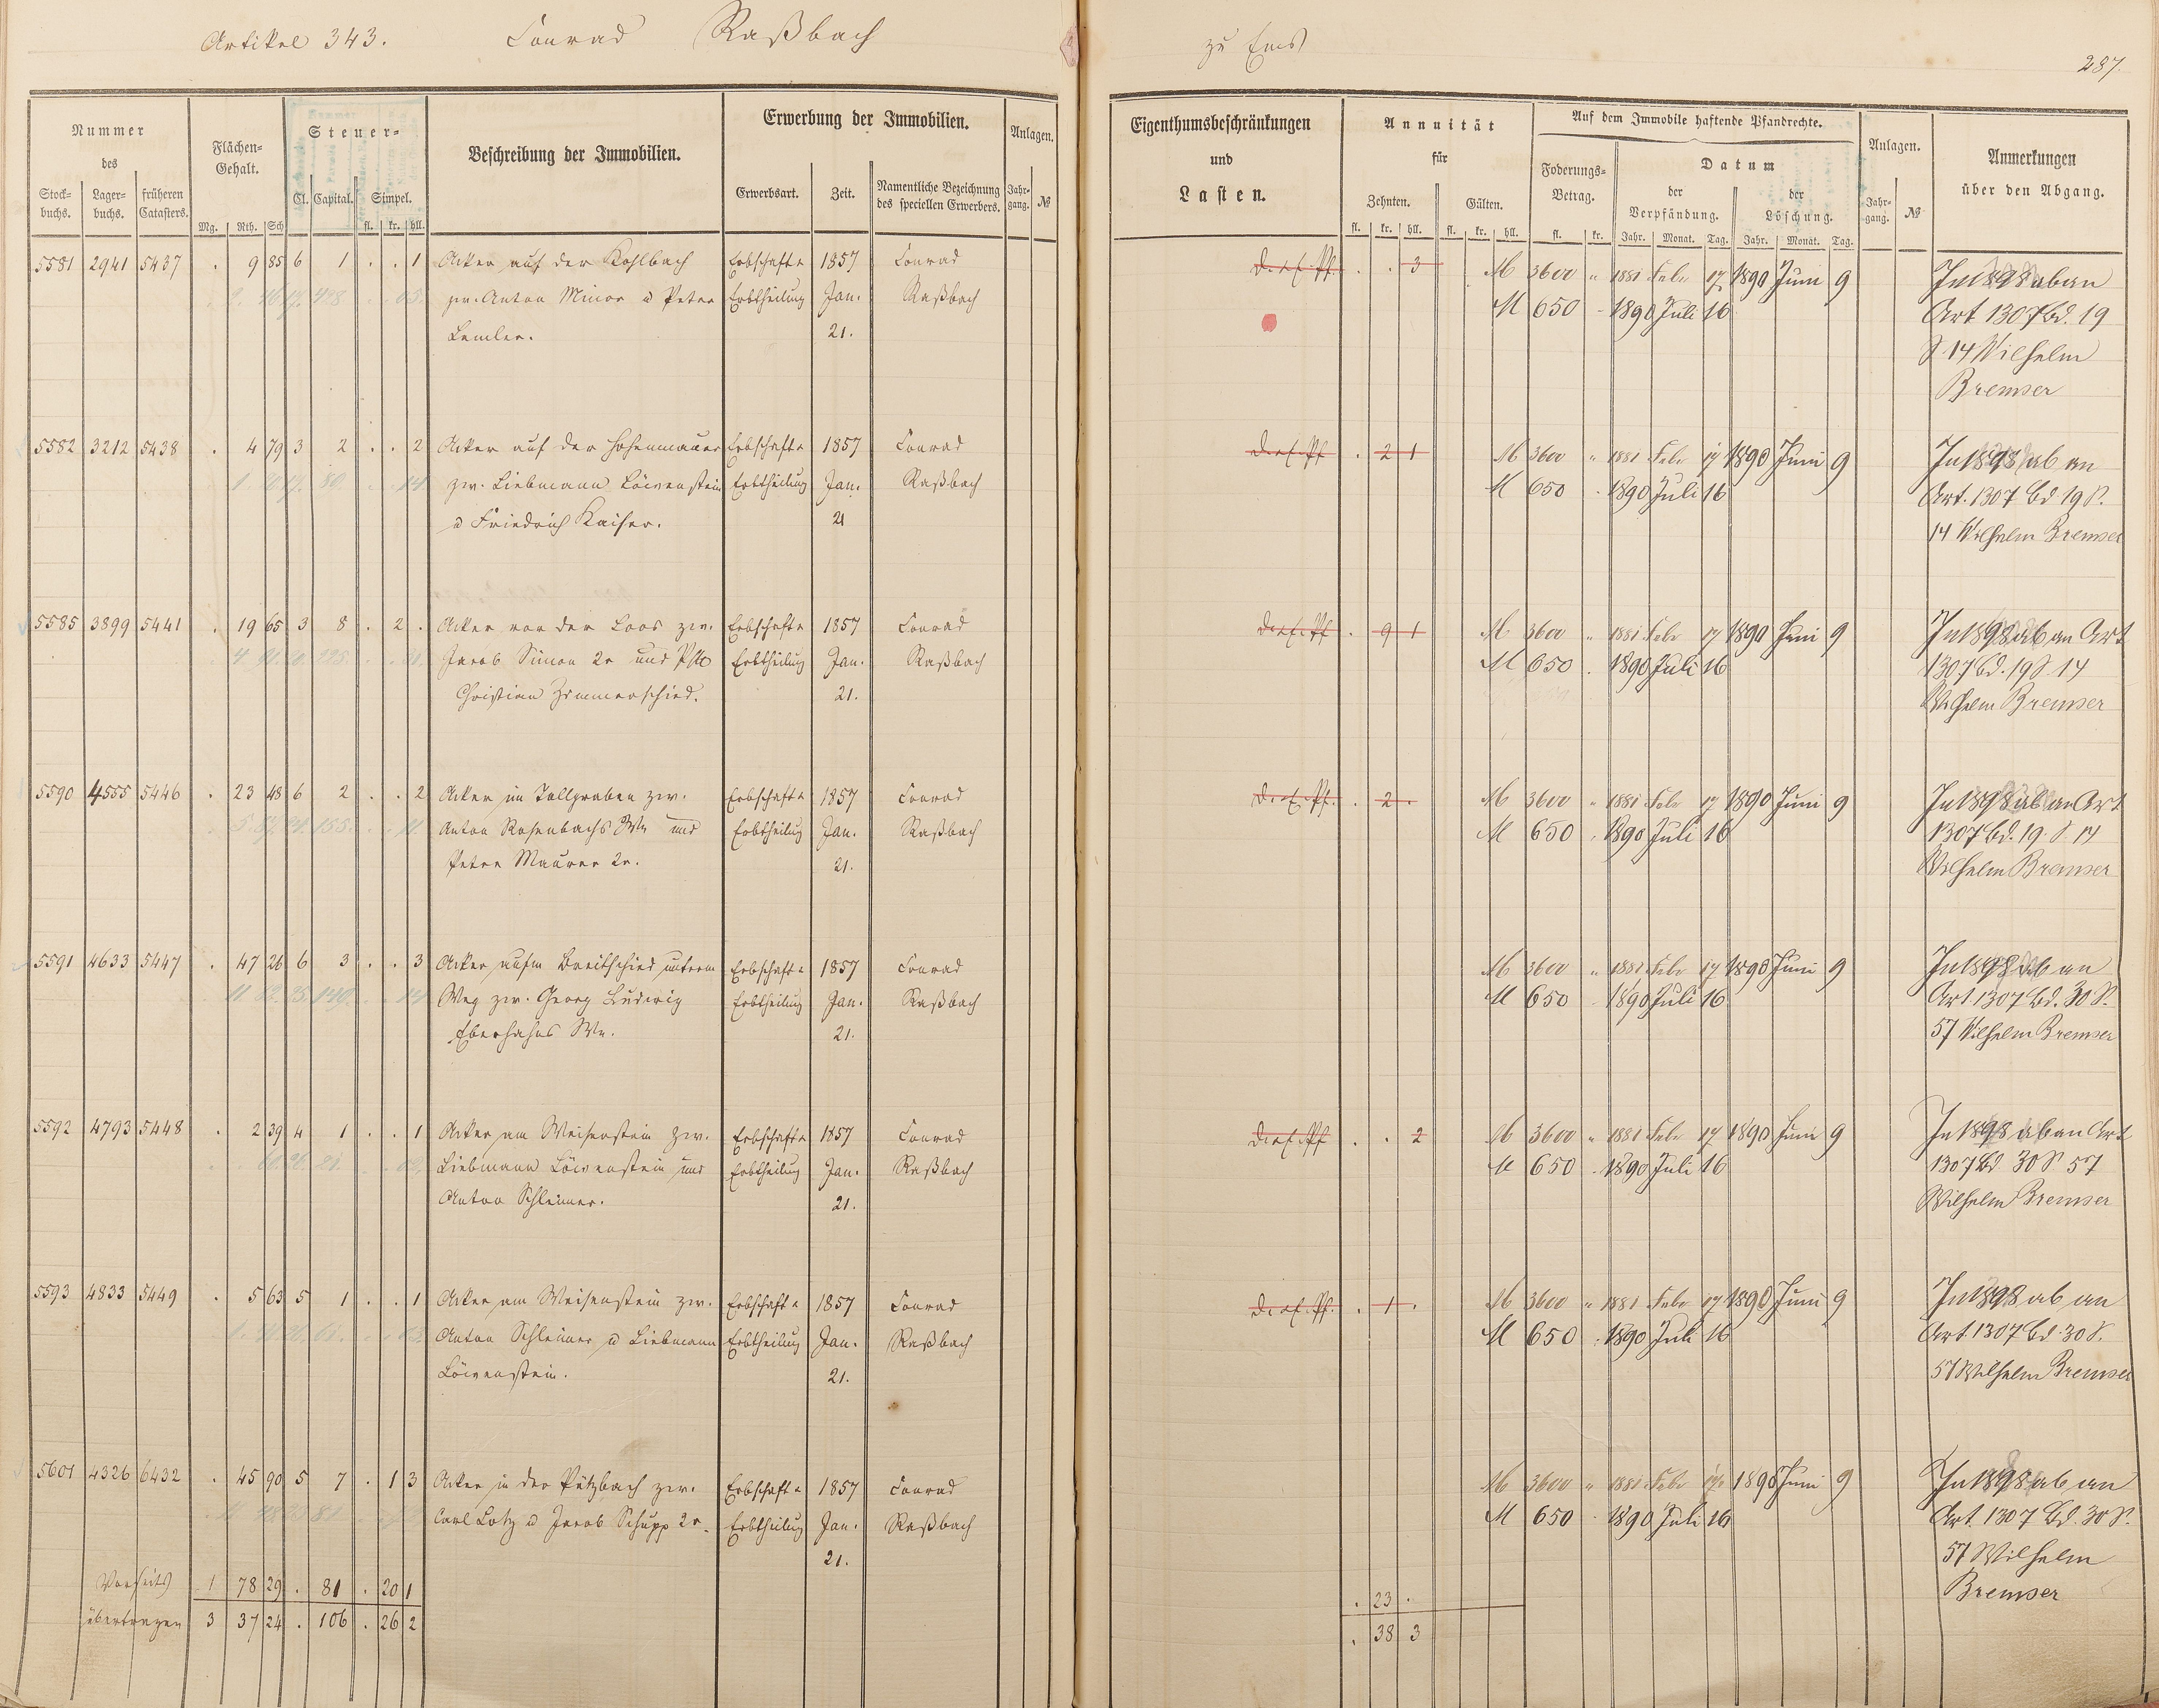 Artikel 343. Conrad Raßbach zu Ems
287.
Nummer des
Stock-buchs. Lager-buchs. früheren Catasters.
Flächen-Gehalt.
Mg. Rth. Sch
Steuer-
Cl. Capital. Simpel.
fl. kr. hll.
Beschreibung der Immobilien.
Erwerbung der Immobilien.
Erwerbsart. Zeit. Namentliche Bezeichnung des speciellen Erwerbers.
Anlagen.
Jahr-gang. №
Eigenthumsbeschränkungen
und
Lasten.
Annuität
für
Zehnten. Gülten.
fl. kr. hll. fl. kr. hll.
Auf dem Immobile haftende Pfandrechte.
Foderungs-Betrag.
fl. kr.
Datum
der Verpfändung. der Löschung.
Jahr. Monat. Tag. Jahr. Monat. Tag.
Anlagen.
Jahr-gang. №
Anmerkungen
über den Abgang.
5581 2941 5437 . 9 85 6 1 . . 1 Acker auf der Kohlbach Erbschafts 1857 Conrad . . 3 M 3600 " 1881 Febr 17 1890 Juni 9 In 1898 ab an
zw. Anton Minor u Peter Erbtheilung Jan. Raßbach M 650 - 1890 Juli 16 Art 1307 Bd. 19
Lemler. 21. S 14 Wilhelm
Bremser
5582 3212 5438 . 4 79 3 2 . . 2 Acker auf der Hohenmauer Erbschafts 1857 Conrad . 2 1 M 3600 " 1881 Febr 17 1890 Juni 9 In 1898 ab an
zw. Liebmann Löwenstein Erbtheilung Jan. Raßbach M 650 - 1890 Juli 16 Art. 1307 Bd 19 S.
u Friedrich Kaiser. 21 14 Wilhelm Bremser
5585 3899 5441 . 19 65 3 8 . 2 . Acker vor der Loos zw. Erbschafts 1857 Conrad . 9 1 M 3600 " 1881 Febr 17 1890 Juni 9 In 1898 ab an Art
Jacob Simon 2r und Erbtheilung Jan. Raßbach M 650 . 1890 Juli 16 1307 Bd. 19 S 14
Christian Zimmerschied. 21. Wilhelm Bremser
5590 4555 5446 . 23 48 6 2 . . 2 Acker im Tollgraben zw. Erbschafts 1857 Conrad . 2 . M 3600 " 1881 Febr 17 1890 Juni 9 In 1898 ab an Art
Anton Rosenbachs Wr und Erbtheilung Jan. Raßbach M 650 . 1890 Juli 16 1307 Bd. 19. S 14
Peter Maurer 2r. 21. Wilhelm Bremser
5591 4633 5447 . 47 26 6 3 . . 3 Acker aufm Breitschied unterm Erbschafts 1857 Conrad M 3600 " 1881 Febr 17 1890 Juni 9 In 1898 ab an
Weg zw. Georg Ludwig Erbtheilung Jan. Raßbach M 650 - 1890 Juli 16 Art. 1307 Bd. 30 S.
Eberhahns Wr. 21. 57 Wilhelm Bremser
5592 4793 5448 . 2 39 4 1 . . 1 Acker am Weisenstein zw. Erbschafts 1857 Conrad . . 2 M 3600 " 1881 Febr 17 1890 Juni 9 In 1898 ab an Art
Liebmann Löwenstein und Erbtheilung Jan. Raßbach M 650 . 1890 Juli 16 1307 Bd 30 S 57
Anton Schleimer. 21. Wilhelm Bremser
5593 4833 5449 . 5 63 5 1 . . 1 Acker am Weisenstein zw. Erbschafts 1857 Conrad . 1 . M 3600 " 1881 Febr 17 1890 Juni 9 In 1898 ab an
Anton Schleimer u Liebmann Erbtheilung Jan. Raßbach M 650 . 1890 Juli 16 Art. 1307 Bd. 30 S.
Löwenstein. 21. 57 Wilhelm Bremser
5601 4326 6432 . 45 90 5 7 . 1 3 Acker in der Pützbach zw. Erbschafts 1857 Conrad M 3600 " 1881 Febr 17 1890 Juni 9 In 1898 ab an
Carl Lotz u Jacob Schupp 2r. Erbtheilung Jan. Raßbach M 650 - 1890 Juli 16 Art. 1307 Bd. 30 S.
21. 57 Wilhelm
Vorseits 1 78 29 . 81 . 20 1 . 23 . Bremser
übertragen 3 37 24 . 106 . 26 2 . 38 3